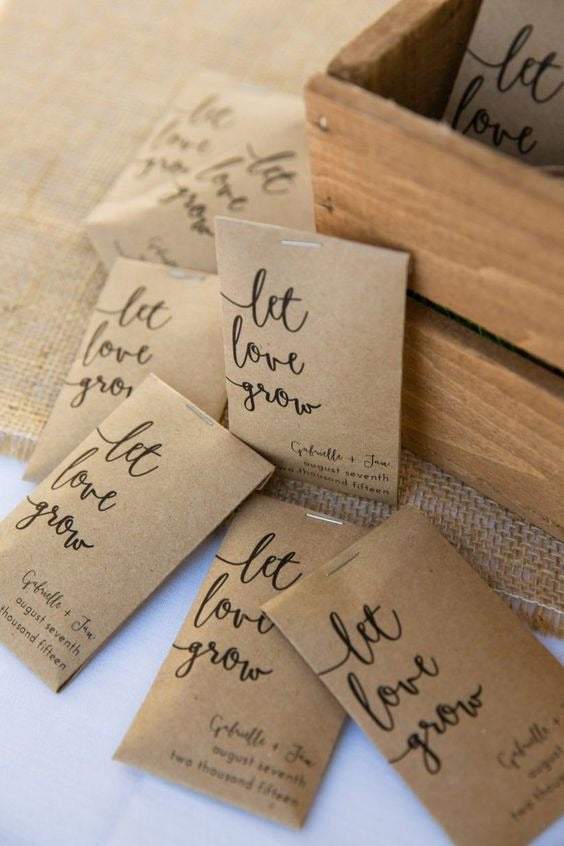 let
love
let
love
grow
let
love
let
love
grow
let
love
grow
Gabrielle + Jan
august seventh
two thousand fifteen
let
love
grow
Gabrielle + Jan
august seventh
thousand fifteen
let
love
grow
Gabrielle + Jan
august seventh
two thousand fifteen
let
love
grow